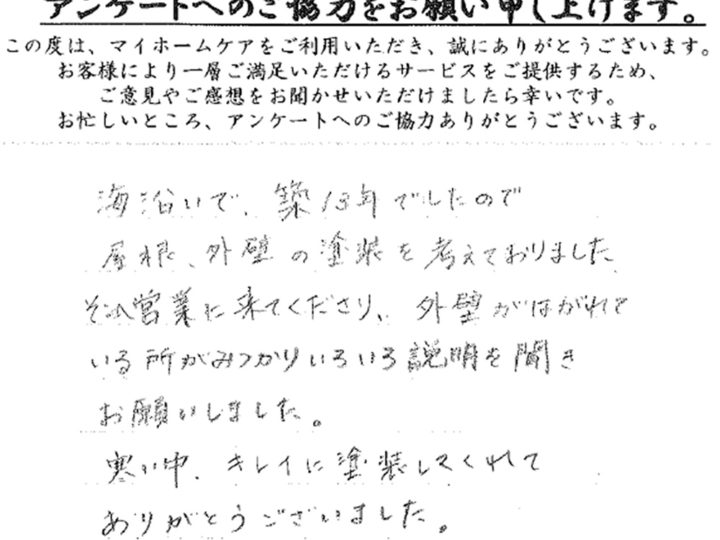 アンケートへのご協力をお願い申し上げます。
この度は、マイホームケアをご利用いただき、誠にありがとうございます。
お客様により一層ご満足いただけるサービスをご提供するため、
ご意見やご感想をお聞かせいただけましたら幸いです。
お忙しいところ、アンケートへのご協力ありがとうございます。
海沿いで、築13年でしたので
屋根、外壁の塗装を考えておりました
そこへ営業に来てくださり、外壁がはがれて
いる所がみつかりいろいろ説明を聞き
お願いしました。
寒い中、キレイに塗装してくれて
ありがとうございました。